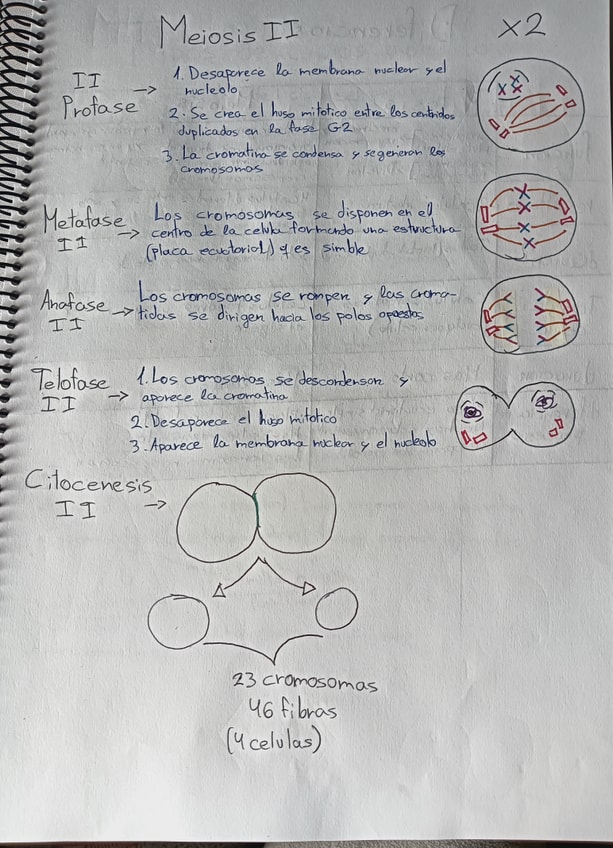 Meiosis II
X2
II
Profase →
1. Desaparece la membrana nuclear y el
nucleolo
2. Se crea el huso mitotico entre los centriolos
duplicados en la fase G2
3. La cromatina se condensa y se generan los
cromosomas
Metafase
II →
Los cromosomas se disponen en el
centro de la celula formando una estructura
(placa ecuatorial) q es simble
Anafase
II →
Los cromosomas se rompen y las croma-
tidas se dirigen hacia los polos opuestos
Telofase
II →
1. Los cromosomas se descondensan y
aparece la cromatina
2. Desaparece el huso mitotico
3. Aparece la membrana nuclear y el nucleolo
Citocenesis
II →
23 cromosomas
46 fibras
(4 celulas)